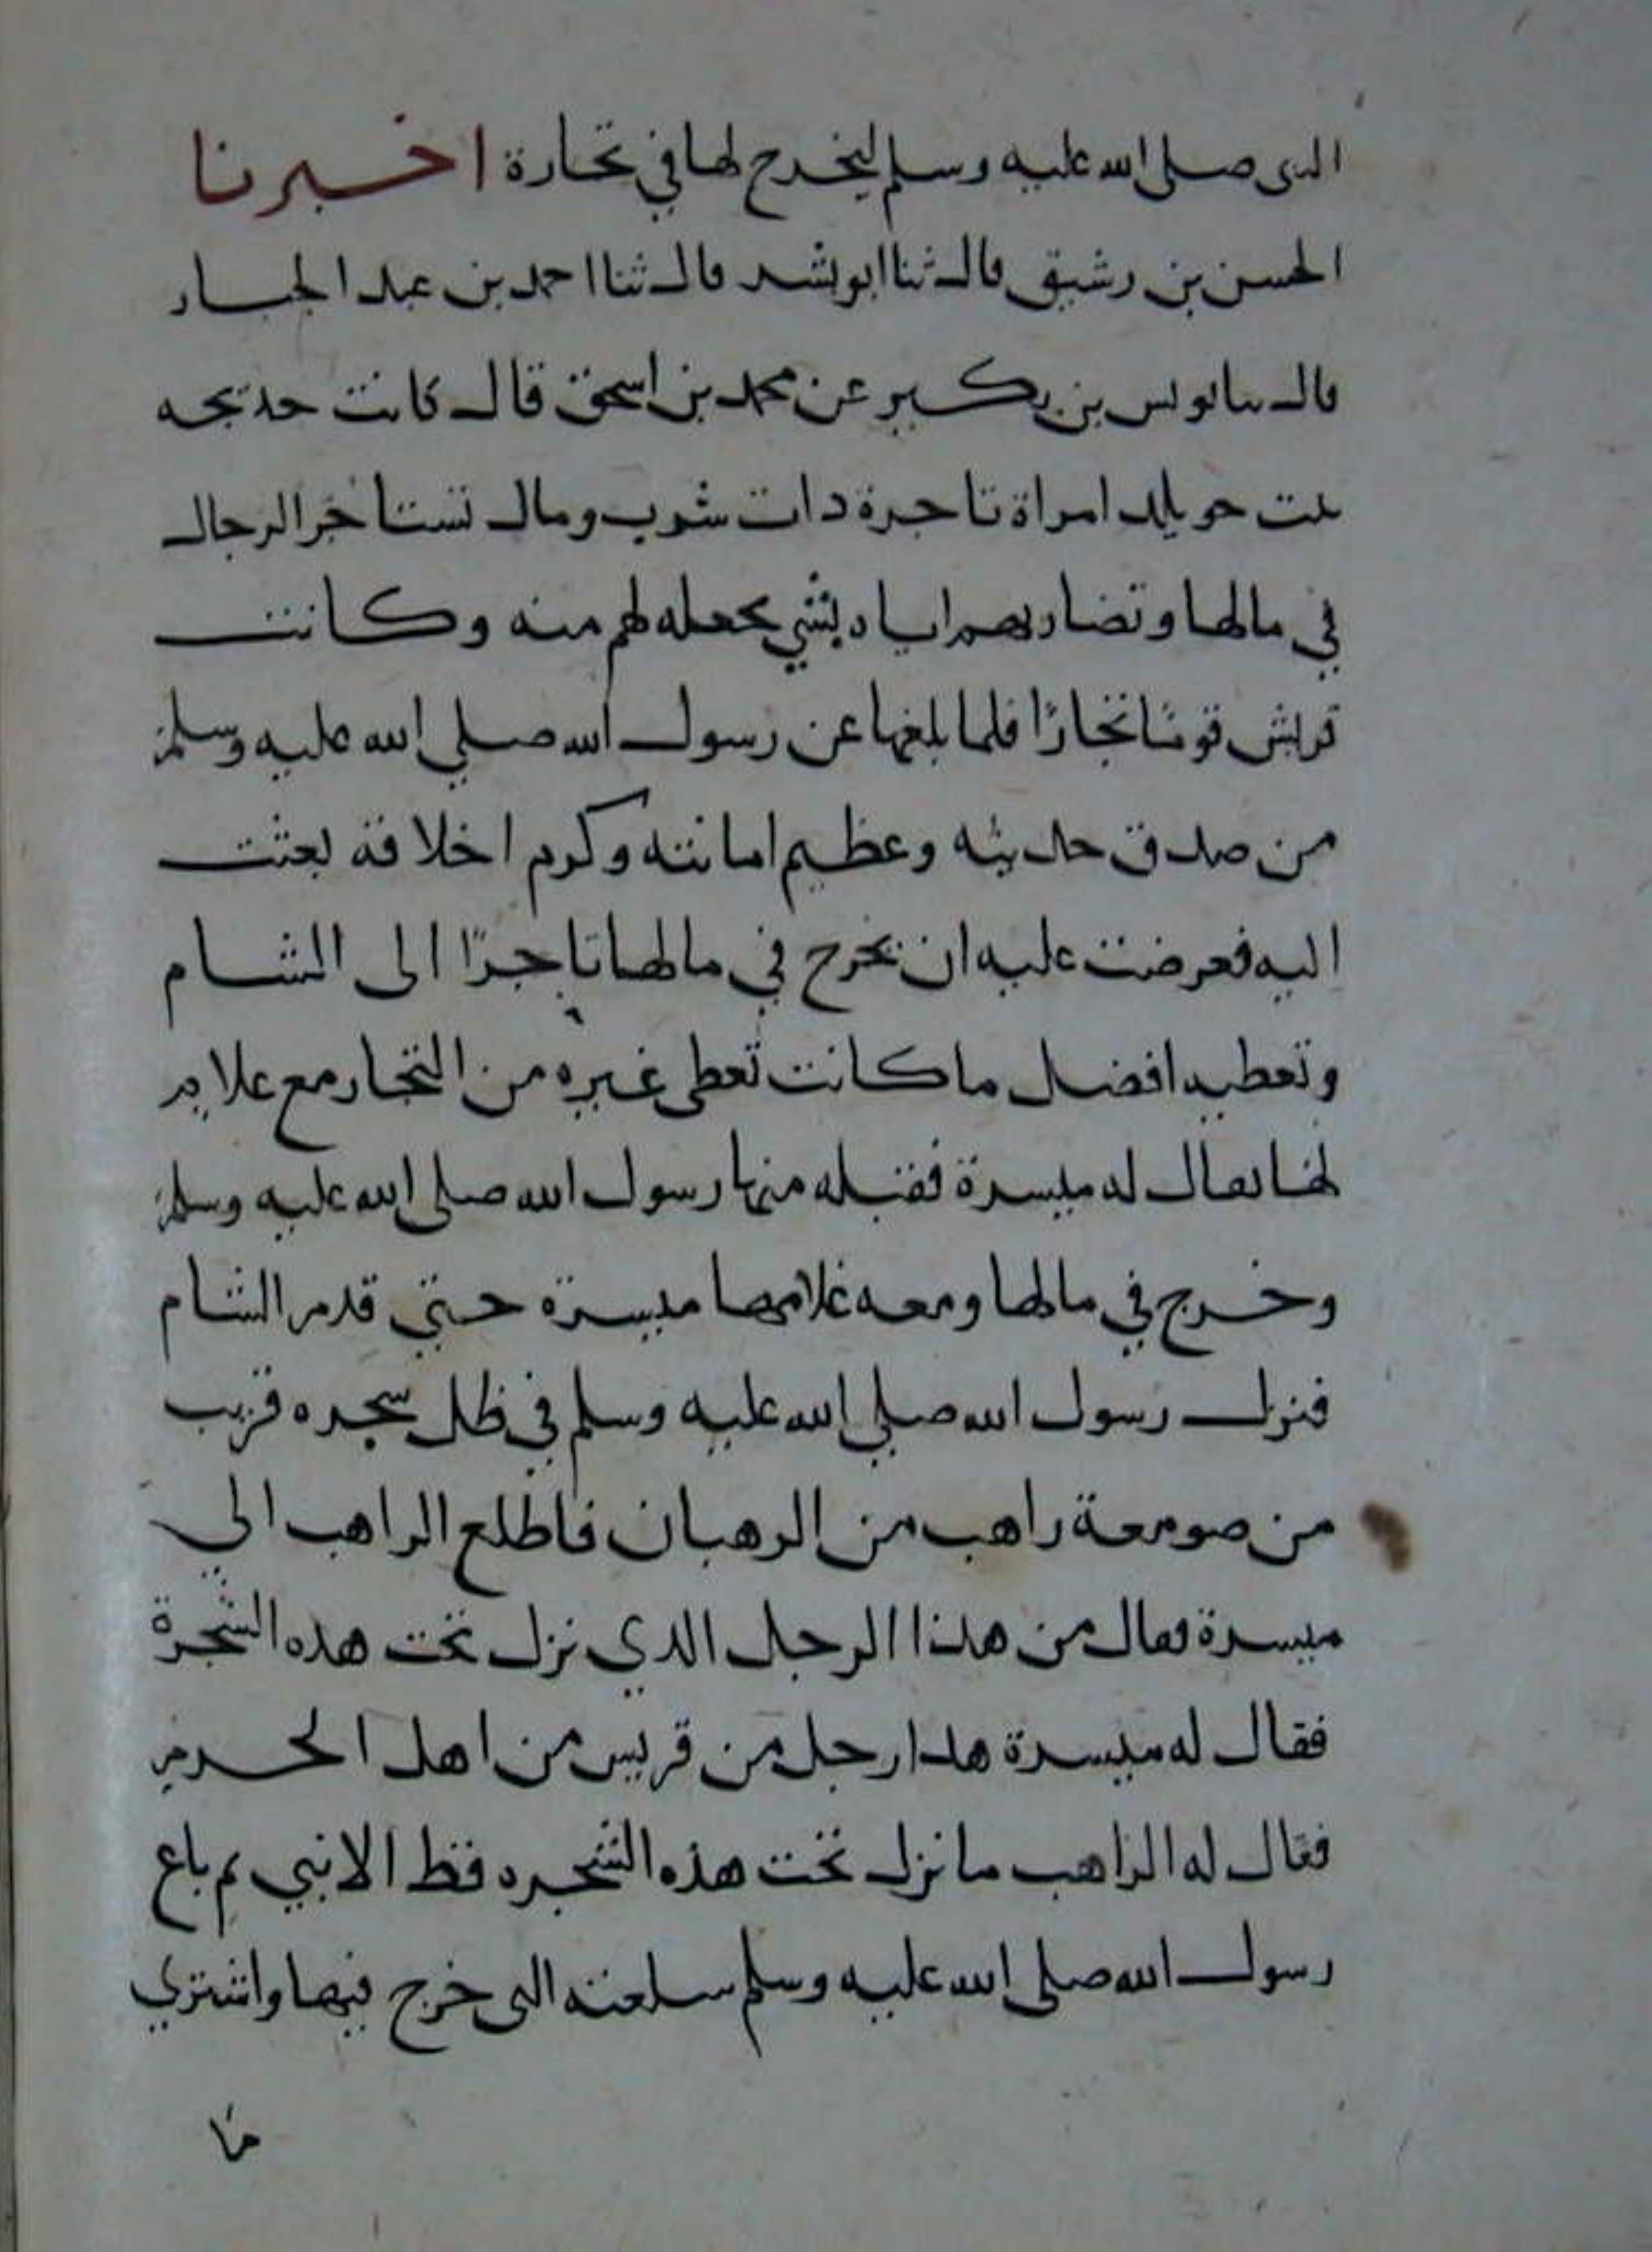 النبى صلى الله عليه وسلم ليخرج لها في تجارة اخبرنا
الحسن بن رشيق قال ثنا ابو بشر قال ثنا احمد بن عبد الجبار
قال ثنا يونس بن بكير عن محمد بن اسحق قال كانت خديجه
بنت خويلد امراة تاجرة ذات شرف ومال تستاجر الرجال
في مالها وتضاربهم اياه بشي يجعله لهم منه وكانت
قريش قومًا تجارًا فلما بلغها عن رسول الله صلي الله عليه وسلم
من صدق حديثه وعظيم امانته وكرم اخلاقه بعثت
اليه فعرضت عليه ان يخرج في مالها تاجرًا الى الشام
وتعطيه افضل ما كانت تعطى غيره من التجار مع غلام
لها يقال له ميسرة فقبله منها رسول الله صلى الله عليه وسلم
وخرج في مالها ومعه غلامها ميسرة حتي قدم الشام
فنزل رسول الله صلي الله عليه وسلم في ظل شجره قريب
من صومعة راهب من الرهبان فاطلع الراهب الي
ميسرة فقال من هذا الرجل الذي نزل تحت هذه الشجرة
فقال له ميسرة هذا رجل من قريش من اهل الحرم
فقال له الراهب ما نزل تحت هذه الشجره قط الا نبي ثم باع
رسول الله صلى الله عليه وسلم سلعته التى خرج فيها واشتري
ما